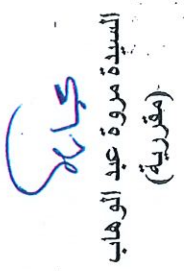 السيدة مروة عبد الوهاب
(مقررية)